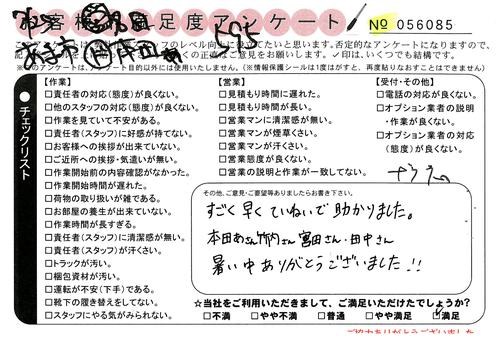 お客様満足度アンケート
No 056085
このアンケートは、スタッフのレベル向上に役立てたいと思います。否定的なアンケートになりますので、
くの正直なご意見をお願いします。✓印は、いくつでも結構です。
※このアンケートは、アンケート目的以外には使用いたしません。(※情報保護シールは1度はがすと、再度貼りなおすことはできません)
チェックリスト
【作業】
□責任者の対応(態度)が良くない。
□他のスタッフの対応(態度)が良くない。
□作業を見ていて不安がある。
□責任者(スタッフ)に好感が持てない。
□お客様への挨拶が出来ていない。
□ご近所への挨拶・気遣いが無い。
□作業開始前の内容確認がなかった。
□作業開始時間が遅れた。
□荷物の取り扱いが雑である。
□お部屋の養生が出来ていない。
□作業時間が長すぎる。
□責任者(スタッフ)に清潔感が無い。
□責任者(スタッフ)が汗くさい。
□トラックが汚い。
□梱包資材が汚い。
□運転が不安(下手)である。
□靴下の履き替えをしてない。
□スタッフにやる気がみられない。
【営業】
□見積もり時間に遅れた。
□見積もり時間が長い。
□営業マンに清潔感が無い。
□営業マンが煙草くさい。
□営業マンが汗くさい。
□営業態度が良くない。
□営業の説明と作業が一致してない。
【受付・その他】
□電話の対応が良くない。
□オプション業者の説明
・作業が良くない。
□オプション業者の対応
(態度)が良くない。
その他、ご意見・ご要望等ありましたらお書き下さい。
すごく早くていねいで助かりました。
本田さん 竹内さん 富田さん・田中さん
暑い中ありがとうございました!!
☆当社をご利用いただきまして、ご満足いただけたでしょうか?
□不満 □やや不満 □普通 □やや満足 ☑満足
ご協力ありがとうございました